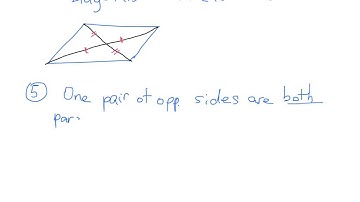 ⑤ One pair of opp. sides are both
par